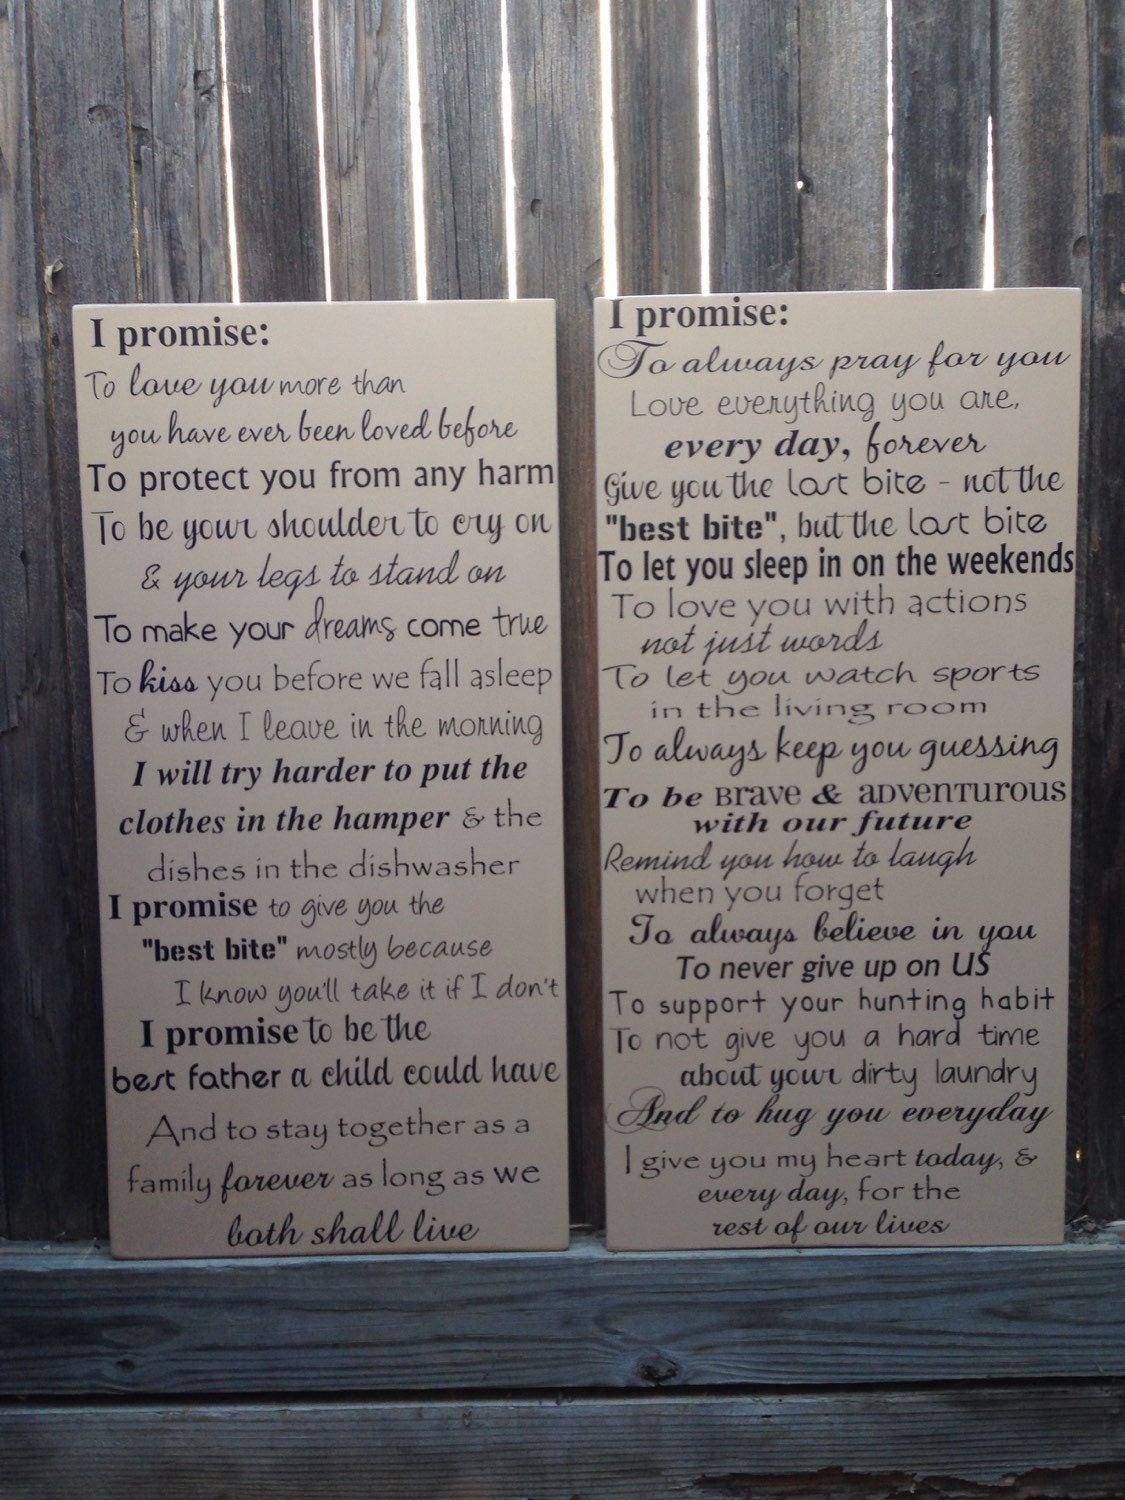 I promise:
To love you more than
you have ever been loved before
To protect you from any harm
To be your shoulder to cry on
& your legs to stand on
To make your dreams come true
To kiss you before we fall asleep
& when I leave in the morning
I will try harder to put the
clothes in the hamper & the
dishes in the dishwasher
I promise to give you the
"best bite" mostly because
I know you'll take it if I don't
I promise to be the
best father a child could have
And to stay together as a
family forever as long as we
both shall live
I promise:
To always pray for you
Love everything you are,
every day, forever
Give you the last bite - not the
"best bite", but the last bite
To let you sleep in on the weekends
To love you with actions
not just words
To let you watch sports
in the living room
To always keep you guessing
To be Brave & ADVENTUROUS
with our future
Remind you how to laugh
when you forget
To always believe in you
To never give up on US
To support your hunting habit
To not give you a hard time
about your dirty laundry
And to hug you everyday
I give you my heart today, &
every day, for the
rest of our lives